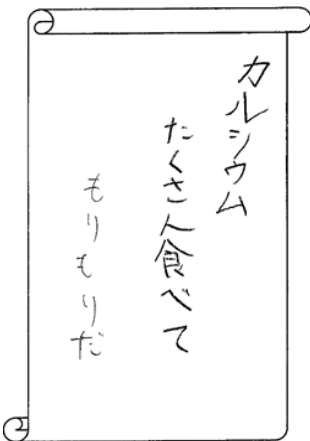 カルシウム
たくさん食べて
もりもりだ